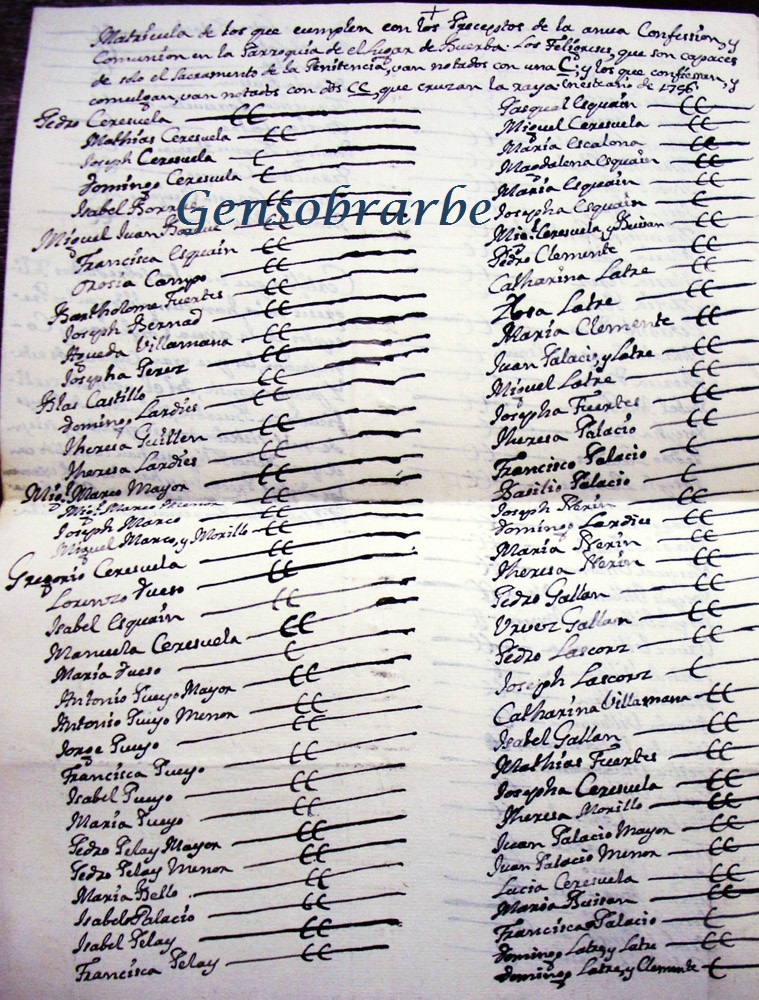 Matricula de los que cumplen con los Preceptos de la anua Confession, y
Comunion en la Parroquia de el Lugar de Buerba. Los Feligreses, que son capaces
de solo el Sacramento de la Penitencia, van notados con una C; y los que confiesan, y
comulgan, van notados con dos CC, que cruzan la raya. en este año de 1756.
Pedro Ceresuela CC
Mathias Ceresuela CC
Joseph Ceresuela C
Domingo Ceresuela C
Isabel CC
Miguel Juan CC
Francisca Esquain CC
Orosia Campo CC
Bartholome Fuertes CC
Joseph Bernad CC
Agueda Villamana CC
Josepha Perez CC
Blas Castillo CC
Domingo Lardies CC
Theresa Guillen CC
Theresa Lardies CC
Mig.l Marco Mayor CC
Mig.l Marco Menor CC
Joseph Marco CC
Miguel Marco, y Morillo CC
Gregorio Ceresuela CC
Lorenzo Fueso CC
Isabel Esquain CC
Manuela Ceresuela CC
Maria Fueso C
Antonio Pueyo Mayor CC
Antonio Pueyo Menor CC
Jorge Pueyo CC
Francisca Pueyo CC
Isabel Pueyo CC
Maria Pueyo CC
Pedro Pelay Mayor CC
Pedro Pelay Menor CC
Maria Bello CC
Isabel Palacio CC
Isabel Pelay CC
Francisca Pelay CC
Pasqual Esquain CC
Miguel Ceresuela CC
Maria Escalona CC
Magdalena Esquain CC
Maria Esquain CC
Josepha Esquain C
Mig.l Ceresuela y Buisan C
Pedro Clemente CC
Catharina Latre CC
Rosa Latre CC
Maria Clemente CC
Juan Palacio, y Latre CC
Miguel Latre CC
Josepha Fuertes CC
Theresa Palacio CC
Francisco Palacio C
Basilio Palacio C
Joseph Nerin CC
Domingo Lardies CC
Maria Nerin CC
Theresa Nerin CC
Pedro Gallan CC
Urvez Gallan CC
Pedro Lascorz CC
Joseph Lascorz C
Catharina Villamana CC
Isabel Gallan CC
Mathias Fuertes CC
Josepha Ceresuela CC
Theresa Morillo CC
Juan Palacio Mayor CC
Juan Palacio Menor CC
Lucia Ceresuela CC
Maria Buisan CC
Francisca Palacio C
Domingo Latre, y Latre CC
Domingo Latre, y Clemente C
Gensobrarbe